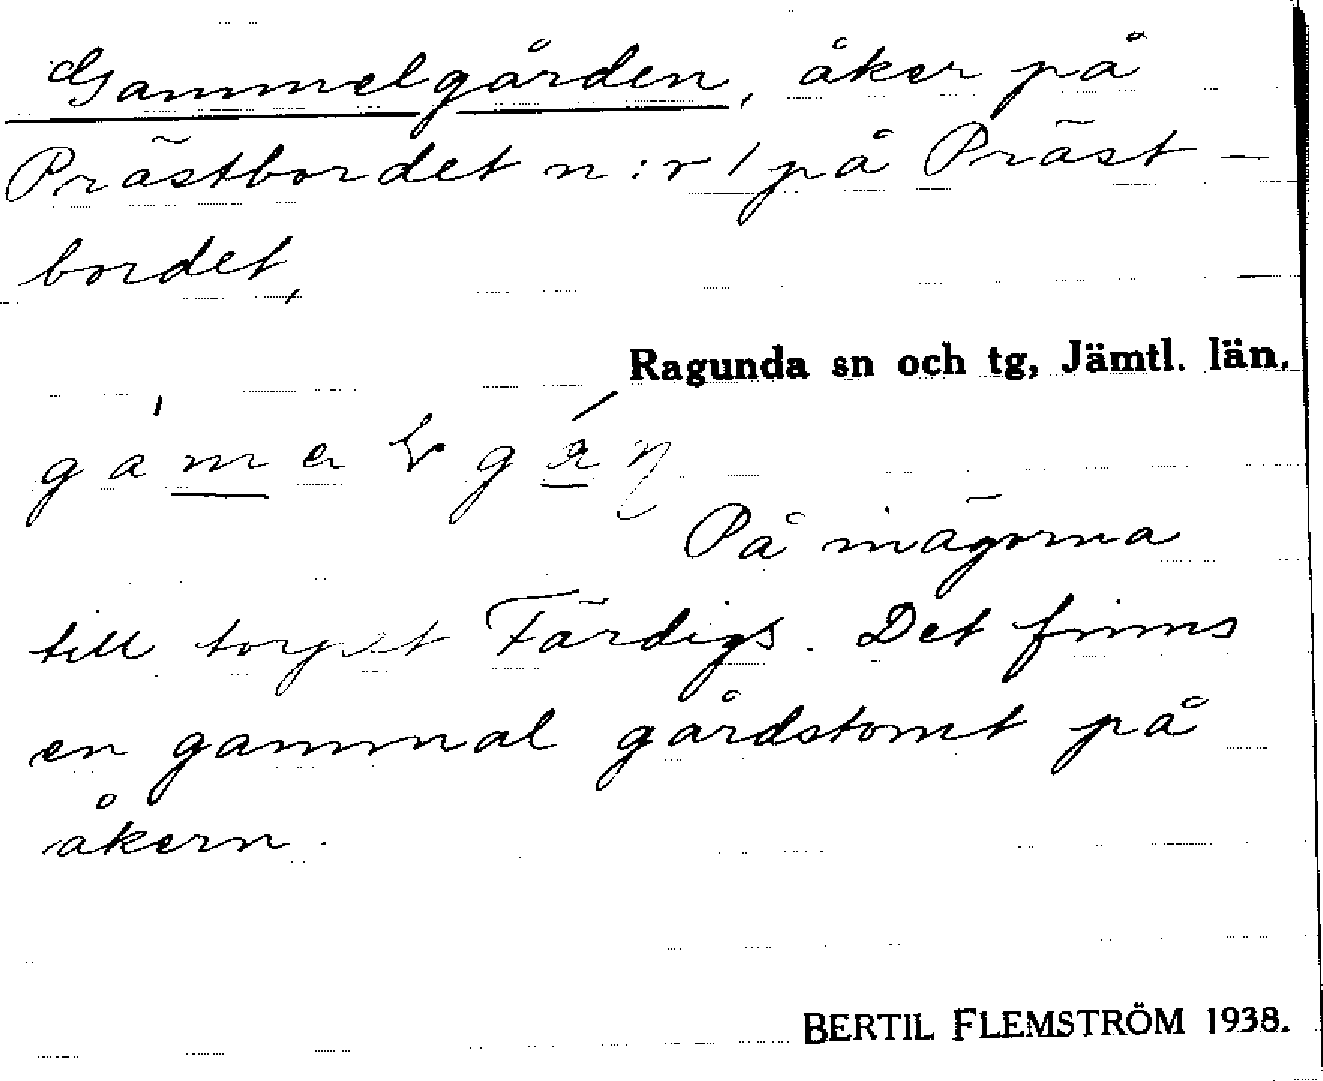 Gammelgården, åker på
Prästbordet n:r 1 på Präst-
bordet,
Ragunda sn och tg, Jämtl. län.
På inägorna
till torpet Färdigs. Det finns
en gammal gårdstomt på
åkern.
BERTIL FLEMSTRÖM 1938.